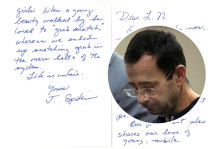 girls. When a young
beauty walked by he
loved to "grab snatch,"
whereas we ended
up snatching grub in
the mess halls of the
system.
Life is unfair.
Yours
J. Epstein
Dear L.N.
also
shares our love of
young, nubile